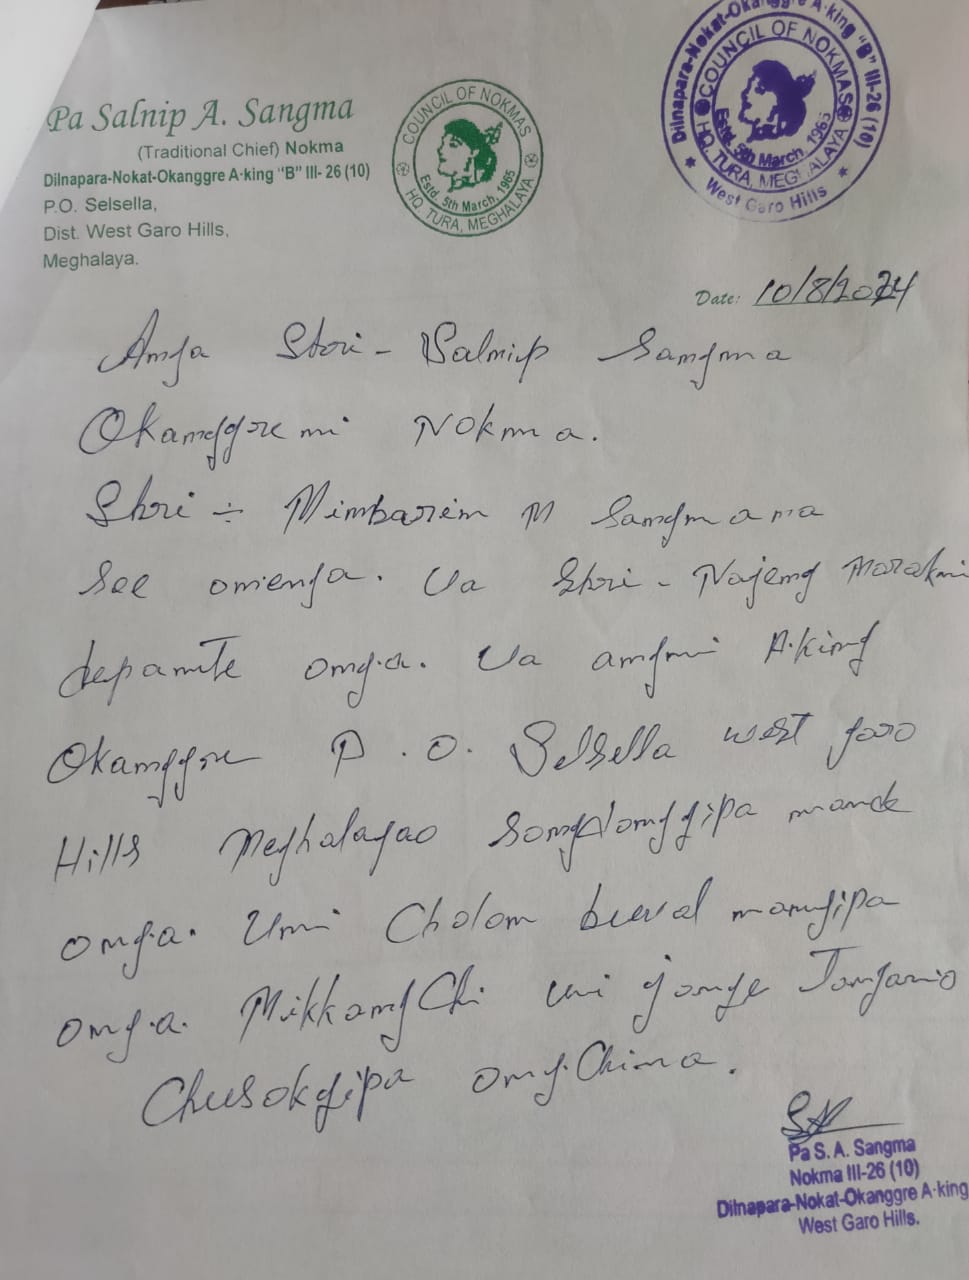 Pa Salnip A. Sangma
(Traditional Chief) Nokma
Dilnapara-Nokat-Okanggre A·king "B" III- 26 (10)
P.O. Selsella,
Dist. West Garo Hills,
Meghalaya.
COUNCIL OF NOKMAS
Estd. 5th March, 1965
HQ. TURA, MEGHALAYA
Dilnapara-Nokat-Okanggre A·king "B" III-26 (10)
COUNCIL OF NOKMAS
Estd. 5th March, 1965
HQ. TURA, MEGHALAYA
West Garo Hills
Date: 10/8/2024
Anga Shri - Salnip Sangma
Okanggre mi Nokma.
Shri ÷ Mimbarim M Sangmana
see onenga. Ua Shri - Najeng Marakmi
depante ong·a. Ua angmi A·king
Okanggre P.O. Selsella west garo
Hills Meghalayao songdonggipa mande
ong·a. Uni Cholon bewal mangipa
ong·a. MikkangChi uni gonge Janganio
Chusokgipa ong·China.
Pa S. A. Sangma
Nokma III-26 (10)
Dilnapara-Nokat-Okanggre A·king
West Garo Hills.